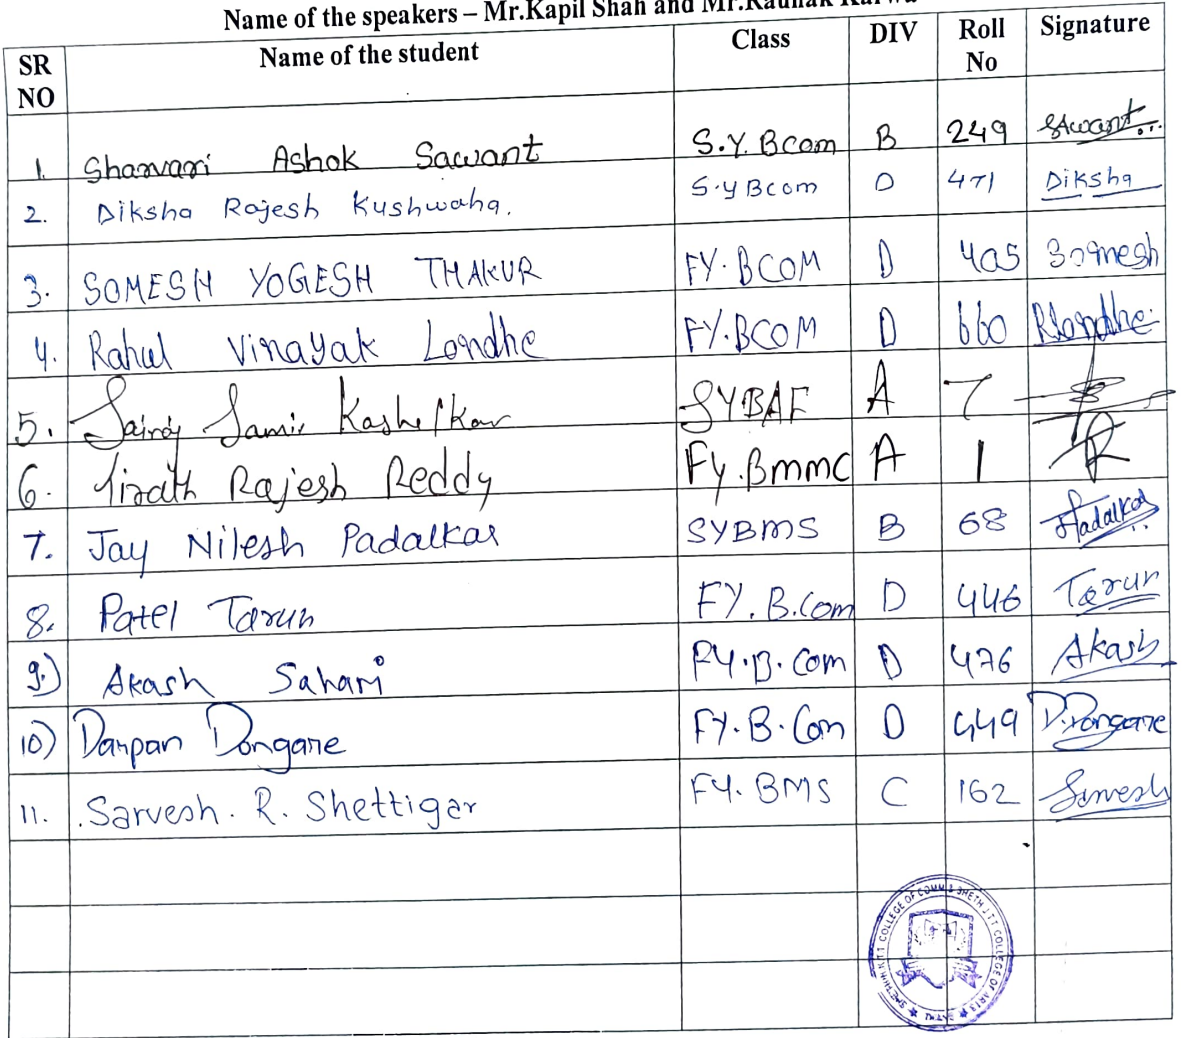 Name of the speakers – Mr.Kapil Shah and Mr.Raunak
SR NO Name of the student Class DIV Roll No Signature
1. Sharvari Ashok Sawant S.Y. Bcom B 249 SAwant
2. Diksha Rajesh Kushwaha. S.y Bcom D 471 Diksha
3. SOMESH YOGESH THAKUR FY.BCOM D 405 Somesh
4. Rahul Vinayak Londhe FY.BCOM D 660 Rlondhe
5. Samir SYBAF A 7
6. Tirath Rajesh Reddy Fy.Bmmc A 1
7. Jay Nilesh Padalkar SYBMS B 68 Padalkar
8. Patel Tarun FY.B.Com D 446 Tarun
9.) Akash Sahani FY.B.Com D 476 Akash
10) Darpan Dongare FY.B.Com D 449 D.Dongare
11. Sarvesh. R. Shettigar FY.BMS C 162 Sarvesh
COLLEGE OF COMM & SHETH J.T.T COLLEGE OF ARTS